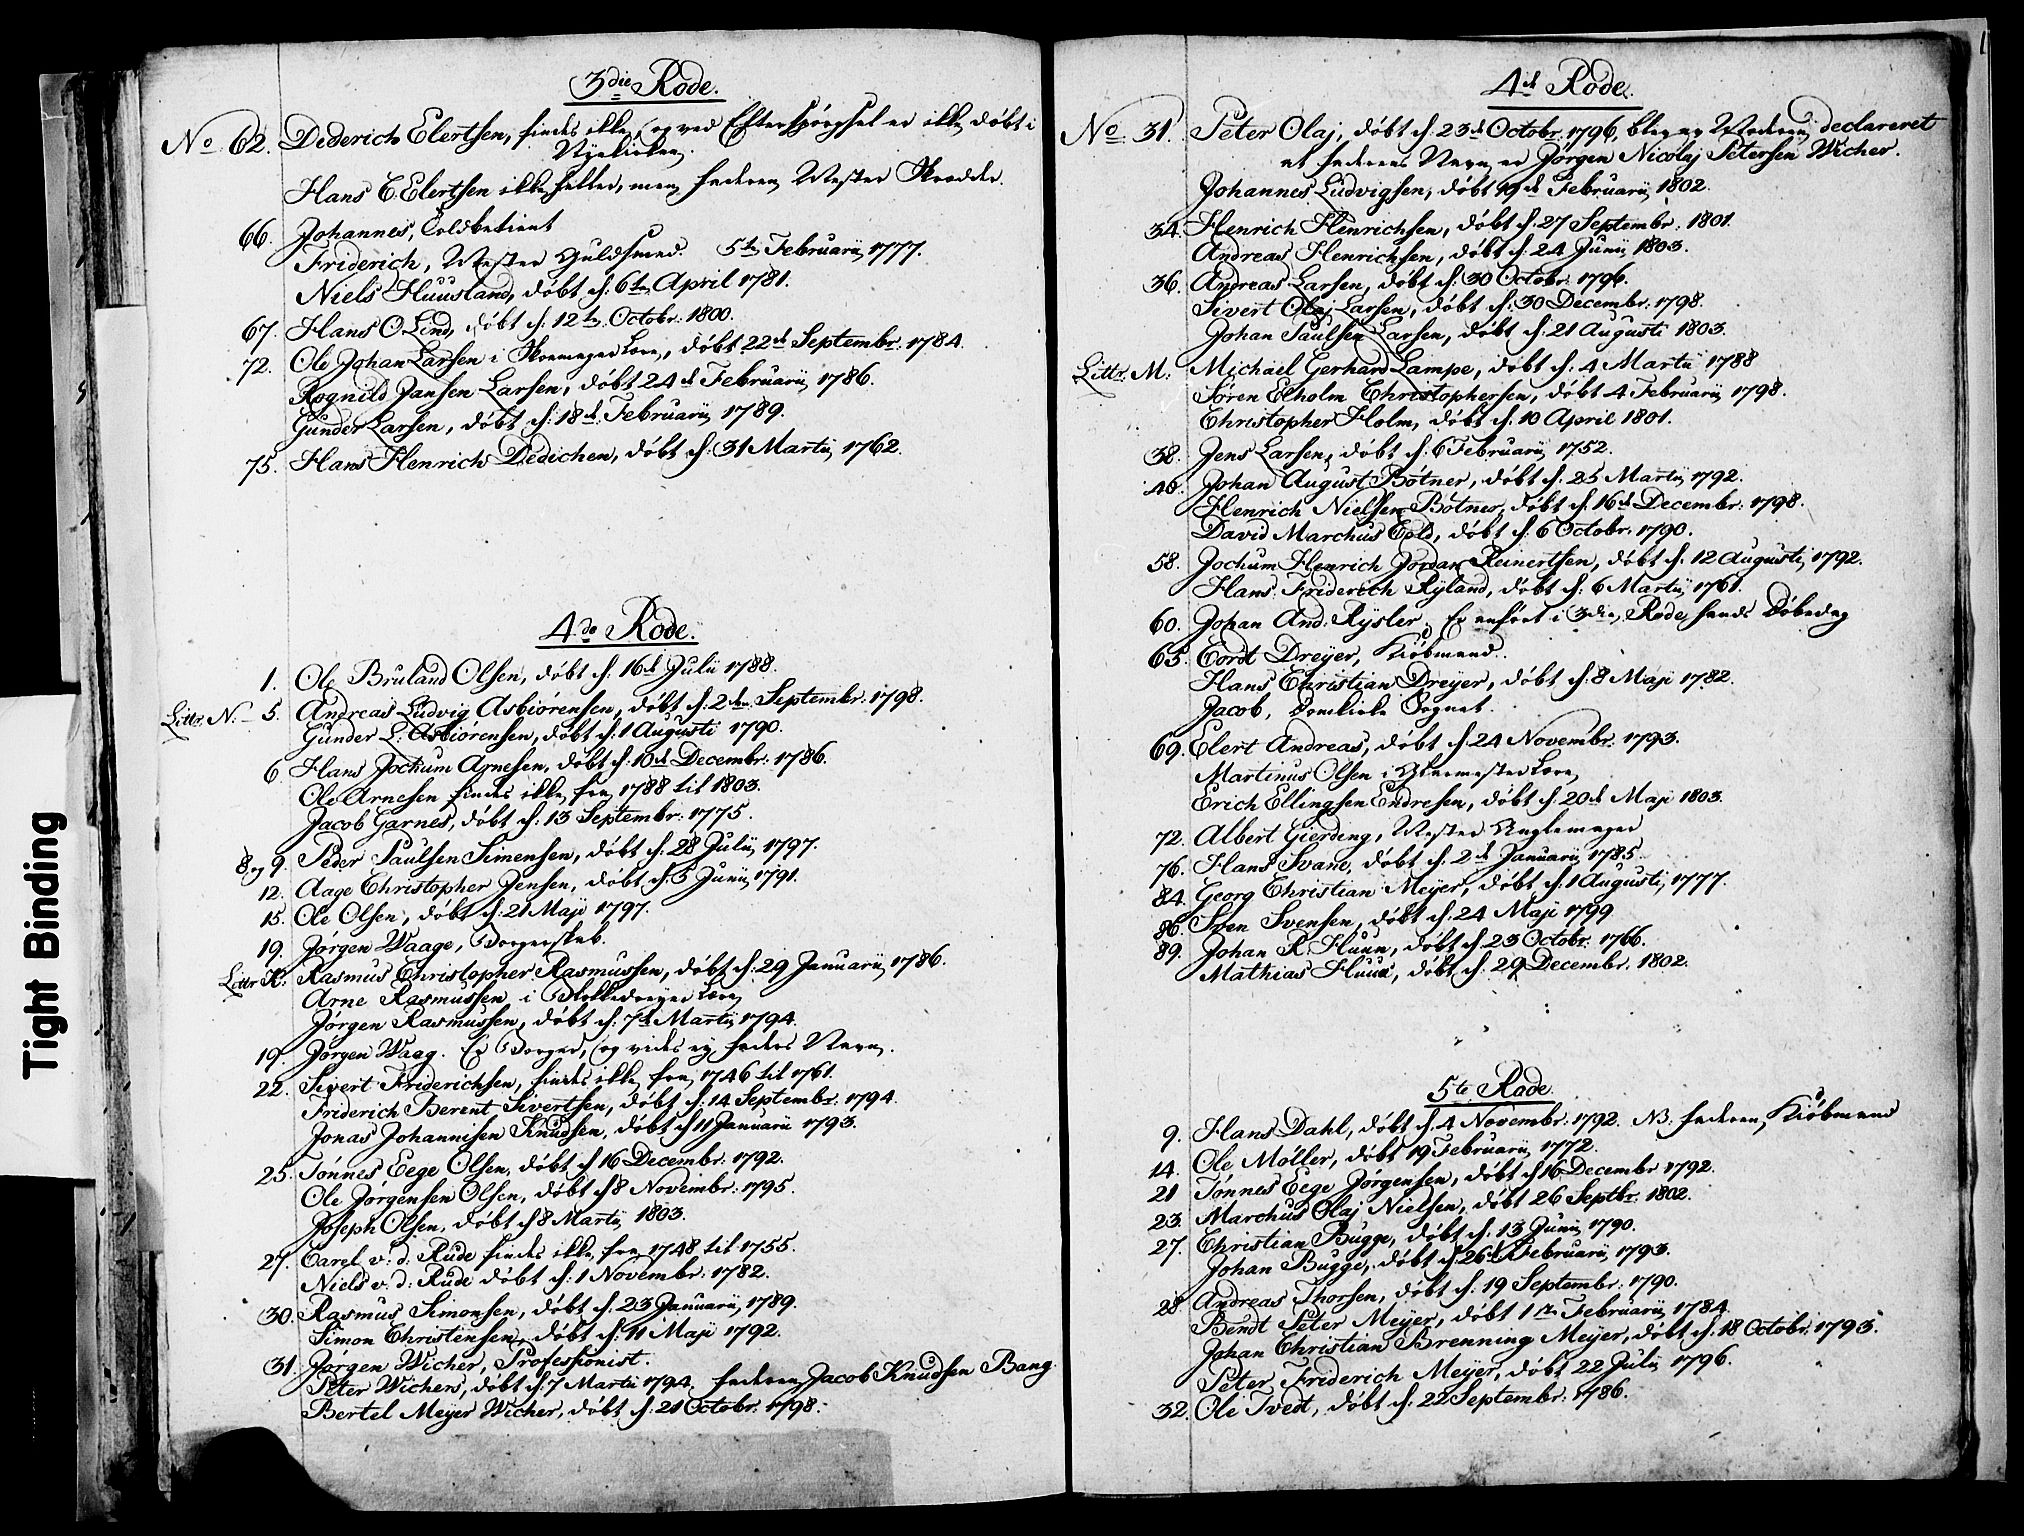 Tight Binding
3die Rode.
No 62. Dederich Elertsen, findes ikke, og ved Efterspörgsel er ikke döbt i
Nyekirken.
Hans C. Elertsen ikke heller, men Faderen Mester Skrædder.
66. Johannes, Toldbetient
Friderich, Mester Guldsmed. 5te Februarij 1777.
Niels Huusland, döbt d: 6te April 1781.
67. Hans O. Lind, döbt d: 12te Octobr: 1800.
72. Ole Johan Larsen i Skomager Lære, döbt 22de Septembr: 1784.
Rognild Jansen Larsen, döbt 24de Februarij 1786.
Gunder Larsen, döbt d: 18de Februarij 1789.
75. Hans Henrich Dedichen, döbt d: 31 Martij 1762.
4de Rode.
1. Ole Bruland Olsen, döbt d: 16de Julii 1788.
Littr. N:- 5. Andreas Ludvig Asbiörensen, döbt d: 2den Septembr: 1798.
Gunder L: Asbiörensen, döbt d: 1 Augusti 1790.
6. Hans Jochum Arnesen, döbt d: 10de Decembr: 1786.
Ole Arnesen findes ikke fra 1788 til 1803.
Jacob Garnes, döbt d: 13 Septembr: 1775.
8 og 9. Peder Paulsen Simensen, döbt d: 28 Julij 1797.
12. Aage Christopher Jensen, döbt d: 5 Junij 1791.
15. Ole Olsen, döbt d: 21 Maji 1797.
19. Jørgen Waage, Borgerskab.
Littr K: Rasmus Christopher Rasmussen, döbt d: 29 Januarij 1786.
Arne Rasmussen i Blokkedreyer Lære
Jørgen Rasmussen, döbt d: 7de Martij 1794.
19. Jørgen Waag. Er Borger, og vides ej Faders Navn.
22. Sivert Friderichsen, findes ikke fra 1746 til 1761.
Friderich Berent Sivertsen, döbt d: 14 Septembr: 1794.
Jonas Johannisen Knudsen, döbt d 11 Januarii 1793.
25. Tönnes Eege Olsen, döbt d 16 Decembr: 1792.
Ole Jørgensen Olsen, döbt d 8 Novembr: 1795.
Joseph Olsen, döbt d 8 Martij 1803.
27. Carel v: d: Rude findes ikke fra 1748 til 1755.
Niels v: d: Rude döbt d: 1 Novembr: 1782.
30. Rasmus Simonsen, döbt d. 23 Januarij 1789.
Simon Christensen, döbt d: 11 Maji 1792.
31. Jørgen Wicher, Professionist.
Peter Wichers, döbt d: 7 Martii 1794, Faderen Jacob Knudsen Bang.
Bertel Meyer Wicher, döbt d: 21 Octobr: 1798.
4de Rode.
No 31. Peter Olaj, döbt d: 23de Octobr: 1796, blev av Moderen declareret
at Faderens Navn er Jørgen Nicolaj Petersen Wicher.
Johannes Ludvigsen, döbt 19de Februarij 1802.
34. Henrich Henrichsen, döbt d: 27 Septembr: 1801.
Andreas Henrichsen, döbt d: 24 Junij 1803.
36. Andreas Larsen, döbt d: 30 Octobr: 1796.
Sivert Olaj Larsen, döbt d: 30 Decembr: 1798.
Johan Paulsen Larsen, döbt d: 21 Augusti 1803.
Littr. M: Michael Gerhard Lampe, döbt d: 4 Martii 1788
Søren Elholm Christophersen, döbt 4 Februarij 1798.
Christopher Holm, döbt d: 10 April 1801.
38. Jens Larsen, döbt d: 6 Februarij 1752.
40. Johan August Bötner, döbt d: 25 Martij 1792.
Henrich Nielsen Bötner, döbt d: 16de Decembr: 1798.
David Marchus Eold, döbt d: 6 Octobr: 1790.
58. Jochum Henrich Jordan Reinertsen, döbt d: 12 Augusti, 1792.
Hans Friderich Ryland, döbt d: 6 Martij 1761.
60. Johan And. Rysler. Er anfört i 3die Rode hands Döbedag
65. Cordt Dreyer, Kiöbmand.
Hans Christian Dreyer, döbt d: 8 Maji 1782.
Jacob, Domkirke Sognet.
69. Elert Andreas, döbt d: 24 Novembr: 1793.
Martinus Olsen i Glarmester Lære
Erich Ellingsen Endresen, döbt d: 20de Maji 1803.
72. Albert Gierding, Mester Naglemager
76. Hans Svane, döbt d: 2de Januarij 1785.
84. Georg Christian Meyer, döbt d: 1 Augusti, 1777.
86. Sven Svensen, döbt d: 24 Maji 1799
89. Johan R. Huun, döbt d: 23 Octobr: 1766.
Mathias Huun, döbt d: 29 Decembr: 1802.
5te Rode.
9. Hans Dahl, döbt d: 4 Novembr: 1792. NB. Faderen Kiöbmand
14. Ole Möller, döbt 19 Februarij 1772.
21 Tönnes Eege Jørgensen, döbt d 16 Decembr 1792.
23. Marchus Olaj Nielsen, döbt 26 Septbr: 1802.
27. Christian Bugge, döbt d: 13 Junii 1790.
Johan Bugge, döbt d 26de Februarij 1793.
28. Andreas Thorsen, döbt d: 19 Septembr: 1790.
Bendt Peter Meyer, döbt 1te Februarij 1784
Johan Christian Brenning Meyer, döbt d: 18 Octobr: 1793.
Peter Friderich Meyer, döbt 22 Julij 1796.
32. Ole Tvedt, döbt d: 22 Septembr: 1786.